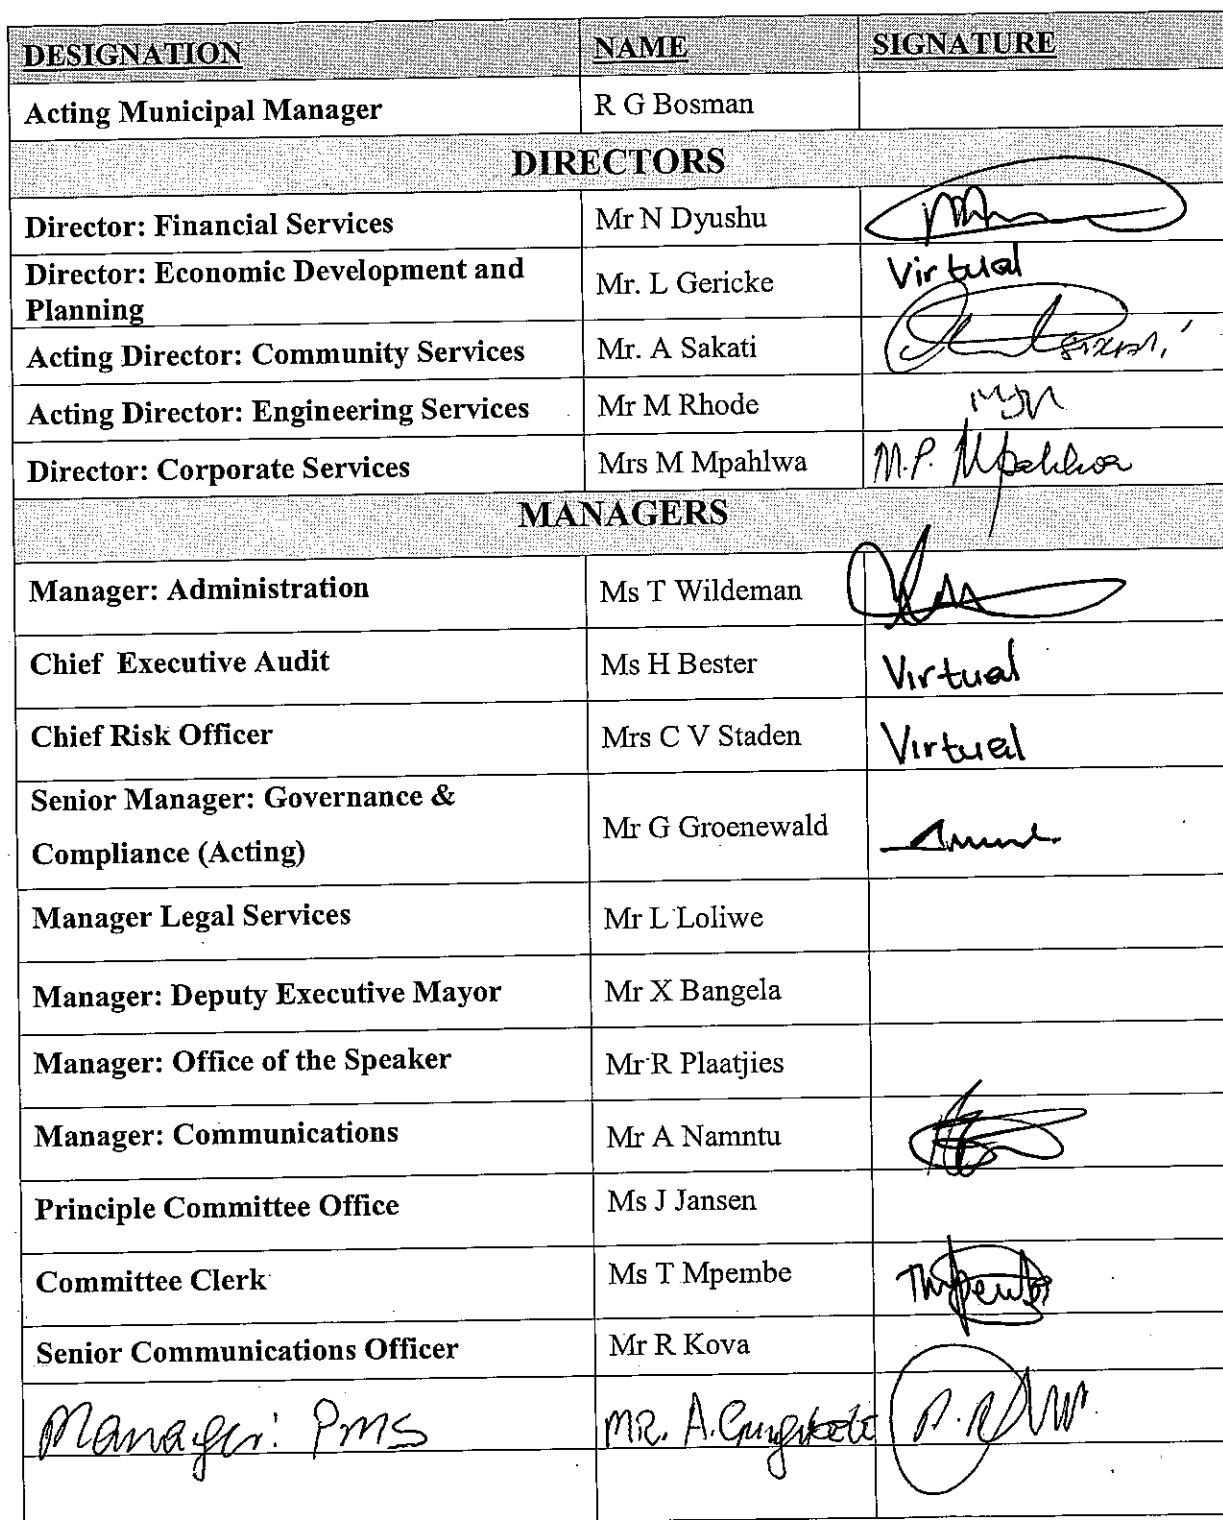 DESIGNATION NAME SIGNATURE
Acting Municipal Manager R G Bosman
DIRECTORS
Director: Financial Services Mr N Dyushu
Director: Economic Development and
Planning Mr. L Gericke Virtual
Acting Director: Community Services Mr. A Sakati
Acting Director: Engineering Services Mr M Rhode
Director: Corporate Services Mrs M Mpahlwa M.P. Mpahlwa
MANAGERS
Manager: Administration Ms T Wildeman
Chief Executive Audit Ms H Bester Virtual
Chief Risk Officer Mrs C V Staden Virtual
Senior Manager: Governance &
Compliance (Acting) Mr G Groenewald
Manager Legal Services Mr L Loliwe
Manager: Deputy Executive Mayor Mr X Bangela
Manager: Office of the Speaker Mr R Plaatjies
Manager: Communications Mr A Namntu
Principle Committee Office Ms J Jansen
Committee Clerk Ms T Mpembe TMpembe
Senior Communications Officer Mr R Kova
Manager: PMS MR. A.